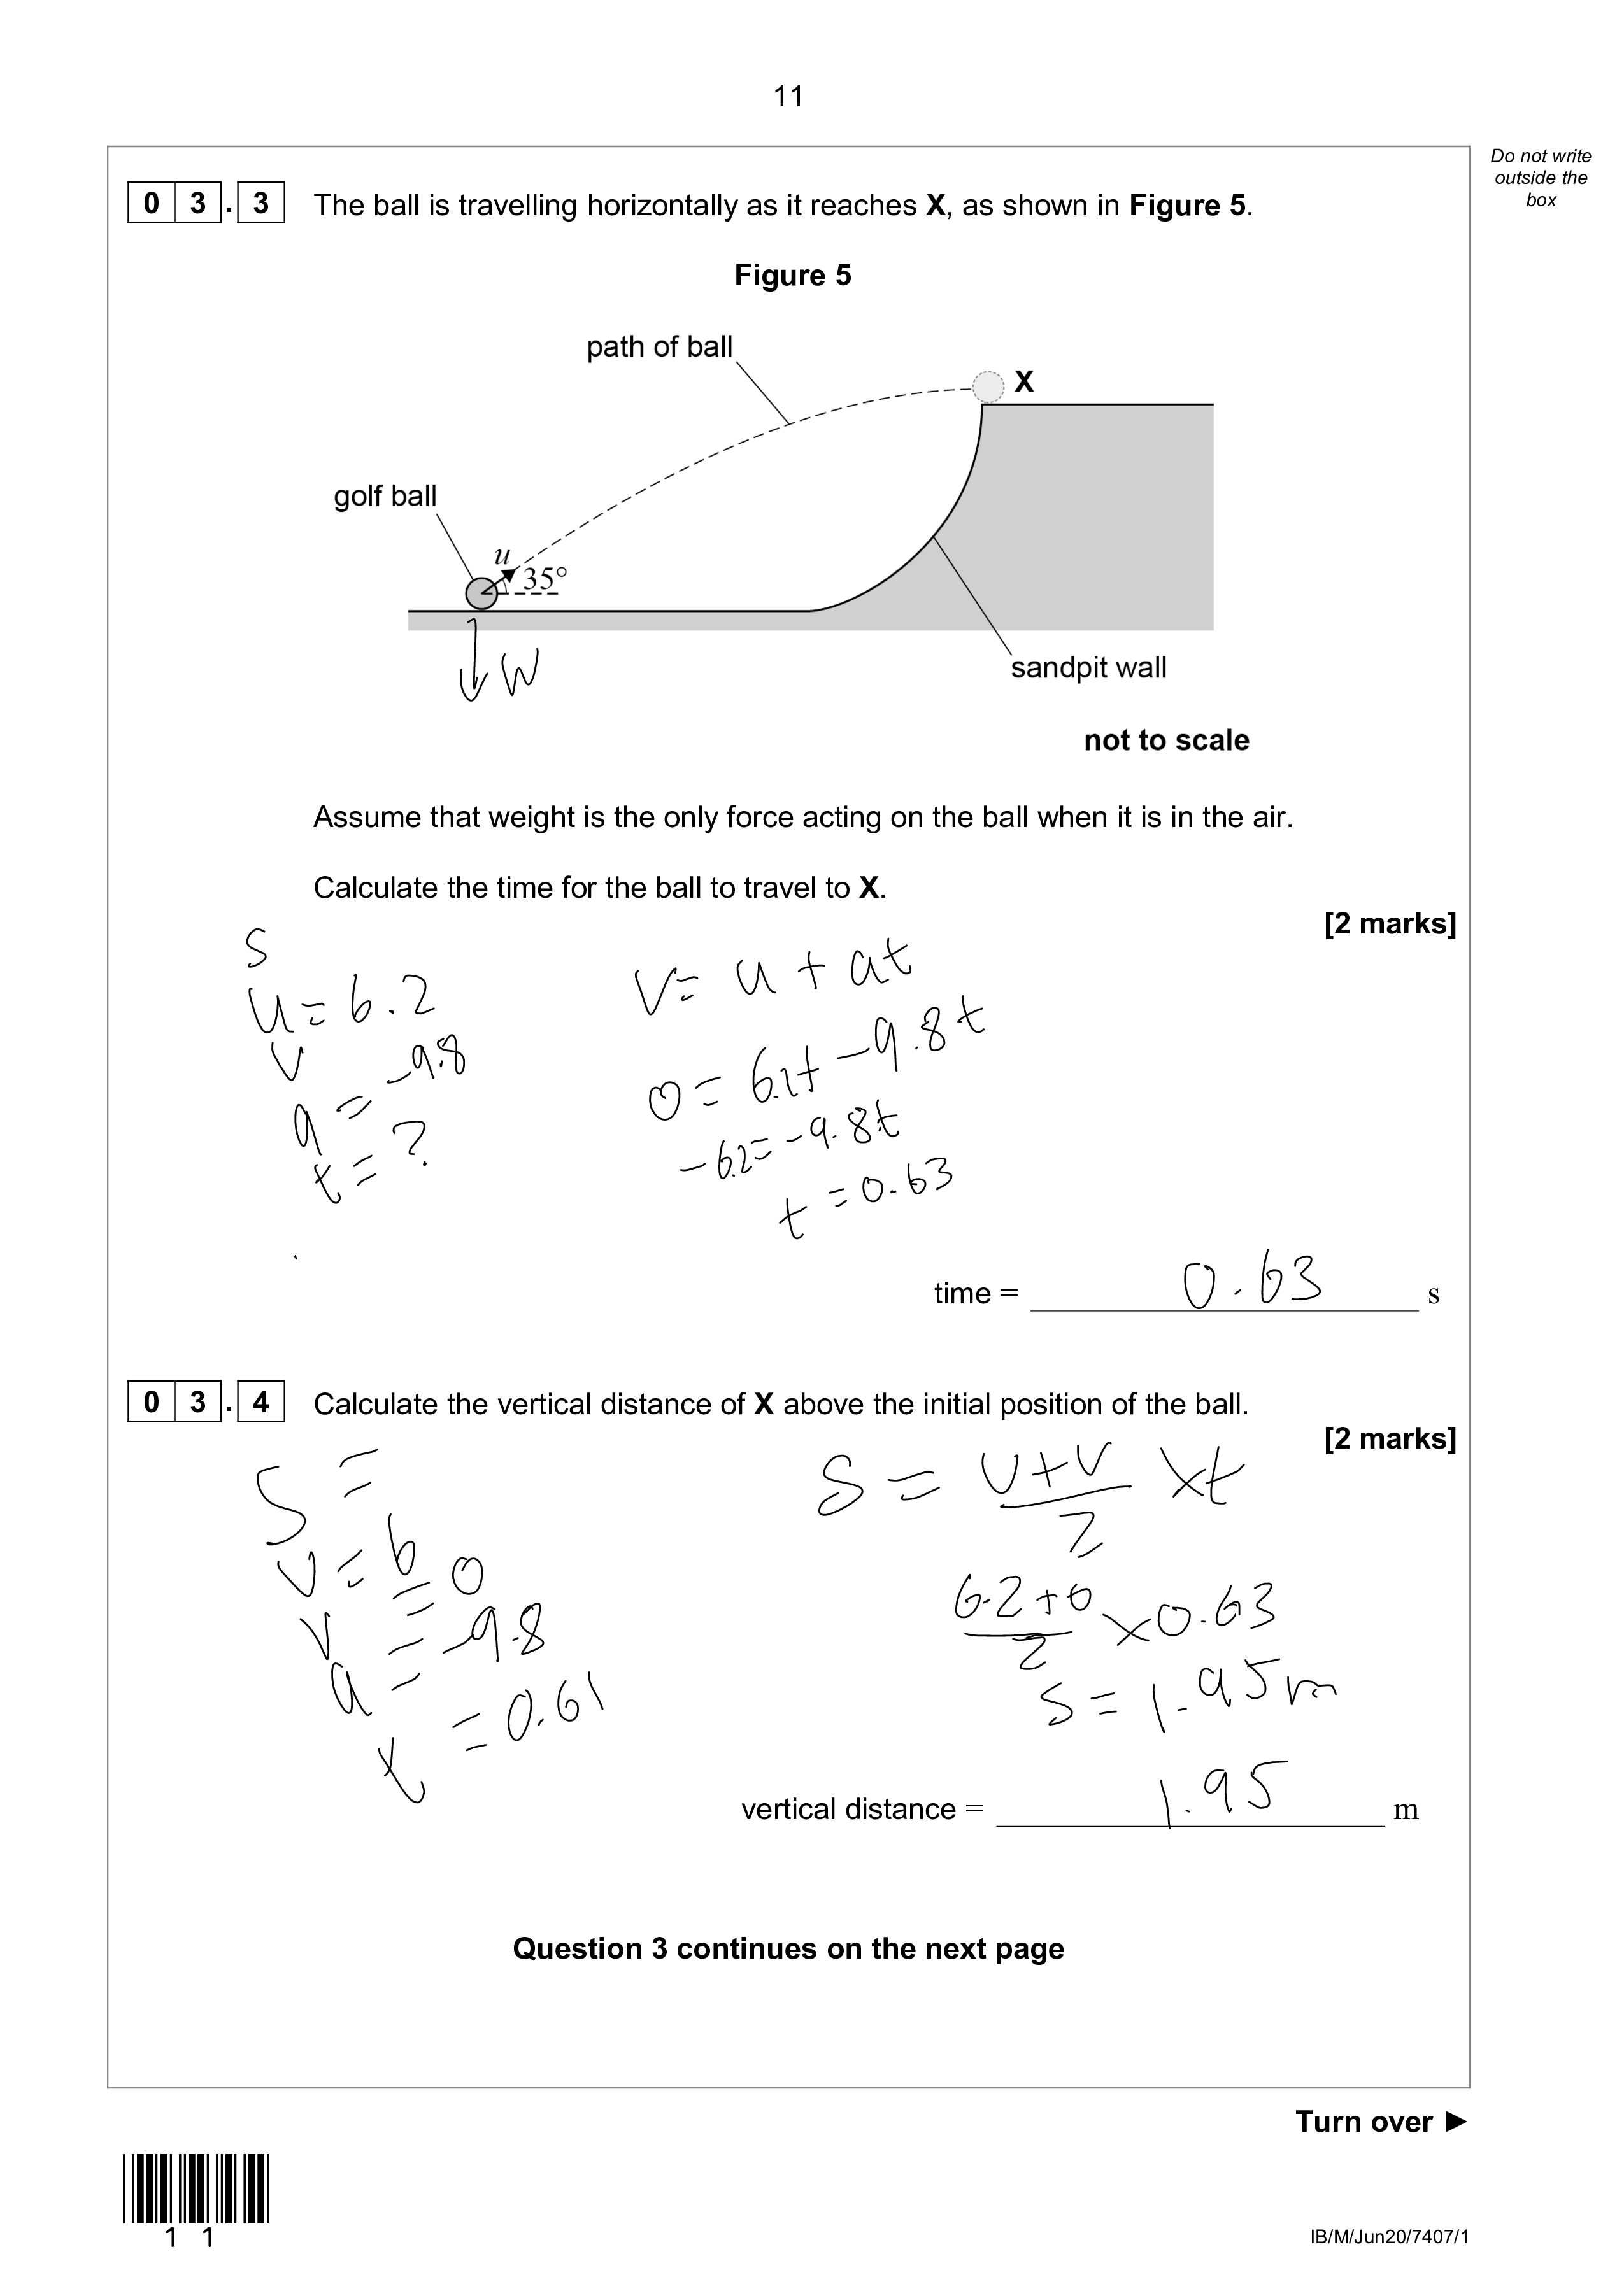 11
Do not write
outside the
box
0 3 . 3 The ball is travelling horizontally as it reaches X, as shown in Figure 5.
Figure 5
path of ball
X
golf ball
u
35°
W
sandpit wall
not to scale
Assume that weight is the only force acting on the ball when it is in the air.
Calculate the time for the ball to travel to X.
[2 marks]
s
u = 6.2
v
a = -9.8
t = ?
v = u + at
0 = 6.2+ -9.8t
-6.2 = -9.8t
t = 0.63
time = 0.63 s
0 3 . 4 Calculate the vertical distance of X above the initial position of the ball.
[2 marks]
S =
U = 6
V = 0
a = -9.8
t = 0.61
S = U+V/2 × t
6.2+0/2 × 0.63
S = 1.95m
vertical distance = 1.95 m
Question 3 continues on the next page
Turn over ►
1 1
IB/M/Jun20/7407/1